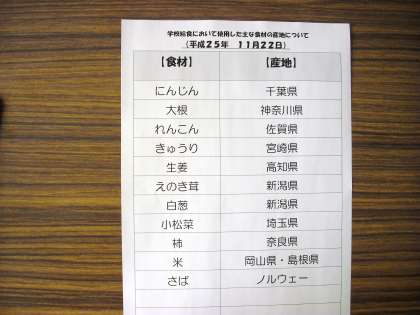 学校給食において使用した主な食材の産地について
(平成25年 11月22日)
【食材】 【産地】
にんじん 千葉県
大根 神奈川県
れんこん 佐賀県
きゅうり 宮崎県
生姜 高知県
えのき茸 新潟県
白葱 新潟県
小松菜 埼玉県
柿 奈良県
米 岡山県・島根県
さば ノルウェー